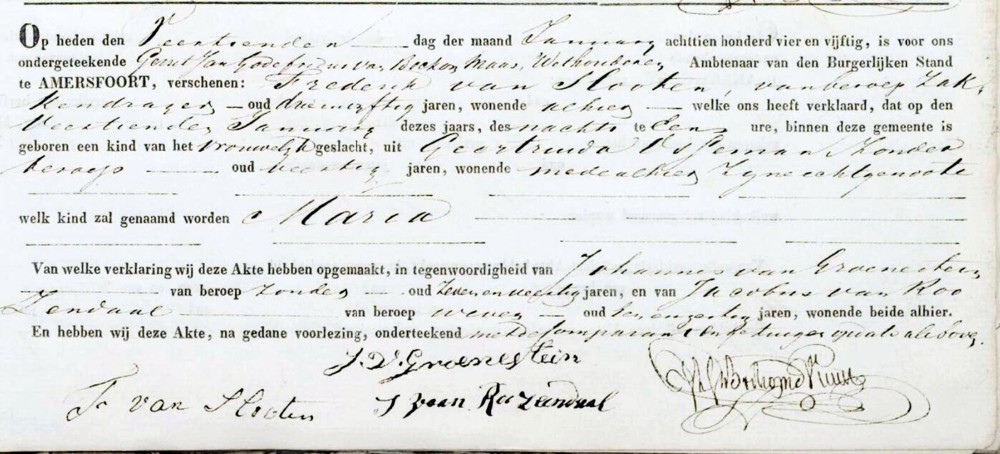 Op heden den Veertienden dag der maand January achttien honderd vier en vijftig, is voor ons
ondergeteekende Gerrit Jan Godefridus van Maas, Wethouder, Ambtenaar van den Burgerlijken Stand
te AMERSFOORT, verschenen: Frederik van Slooten van beroep Zak-
kendrager oud drieenvyftig jaren, wonende alhier welke ons heeft verklaard, dat op den
Veertienden January dezes jaars, des nachts te Een ure, binnen deze gemeente is
geboren een kind van het vrouwelyk geslacht, uit Geertruida Zonder
beroep oud veertig jaren, wonende mede alhier Zyne echtgenoote
welk kind zal genaamd worden Maria
Van welke verklaring wij deze Akte hebben opgemaakt, in tegenwoordigheid van Johannes van Groenestein
van beroep zonder oud Zevenenveertig jaren, en van Jacobus van Roo
Zendaal van beroep wever oud jaren, wonende beide alhier.
En hebben wij deze Akte, na gedane voorlezing, onderteekend met de Comparant en getuigen
J. V. Groenestein
F. van Slooten J van Rozendaal